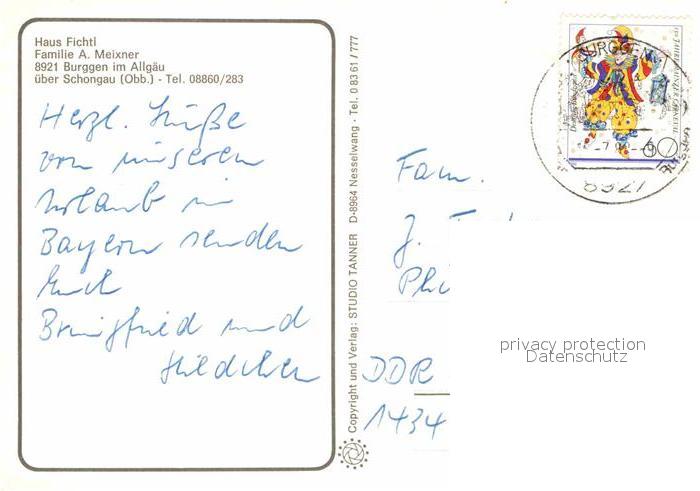 Haus Fichtl
Familie A. Meixner
8921 Burggen im Allgäu
über Schongau (Obb.) - Tel. 08860/283
Herzl. Grüße
von unserem
Urlaub in
Bayern senden
Euch
und
Hildchen
Copyright und Verlag: STUDIO TANNER D-8964 Nesselwang · Tel. 0 83 61 / 777
BURGGEN
60
8921
Fam.
J.
DDR
1434
privacy protection
Datenschutz